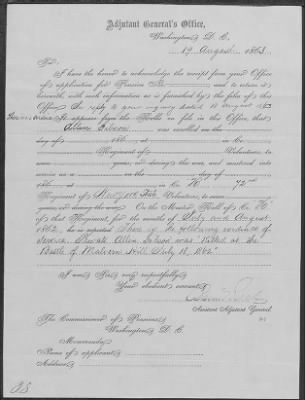 Adjutant General's Office,
Washington, D. C.
19 August 1863.
Sir:
I have the honor to acknowledge the receipt from your Office
of application for Pension No. and to return it
herewith, with such information as is furnished by the files of this
Office. In reply to your inquiry dated 18 August 1863
It appears from the Rolls on file in this Office, that
was enrolled on the
day of 186 at in Co.
Regiment of Volunteers, to serve
years, or during the war, and mustered into
service as a on the day of
186 at in Co. "K" 72nd
Regiment of New York State Volunteers, to serve
years, or during the war. On the Muster Roll of Co. "K"
of that Regiment, for the months of July and August
1862, he is reported
Private "Killed at the
Battle of Malvern Hill July 1862"
I am, Sir, very respectfully,
Your obedient servant,
Assistant Adjutant General.
The Commissioner of Pensions,
Washington, D. C.
Memoranda:
Name of applicant
Address